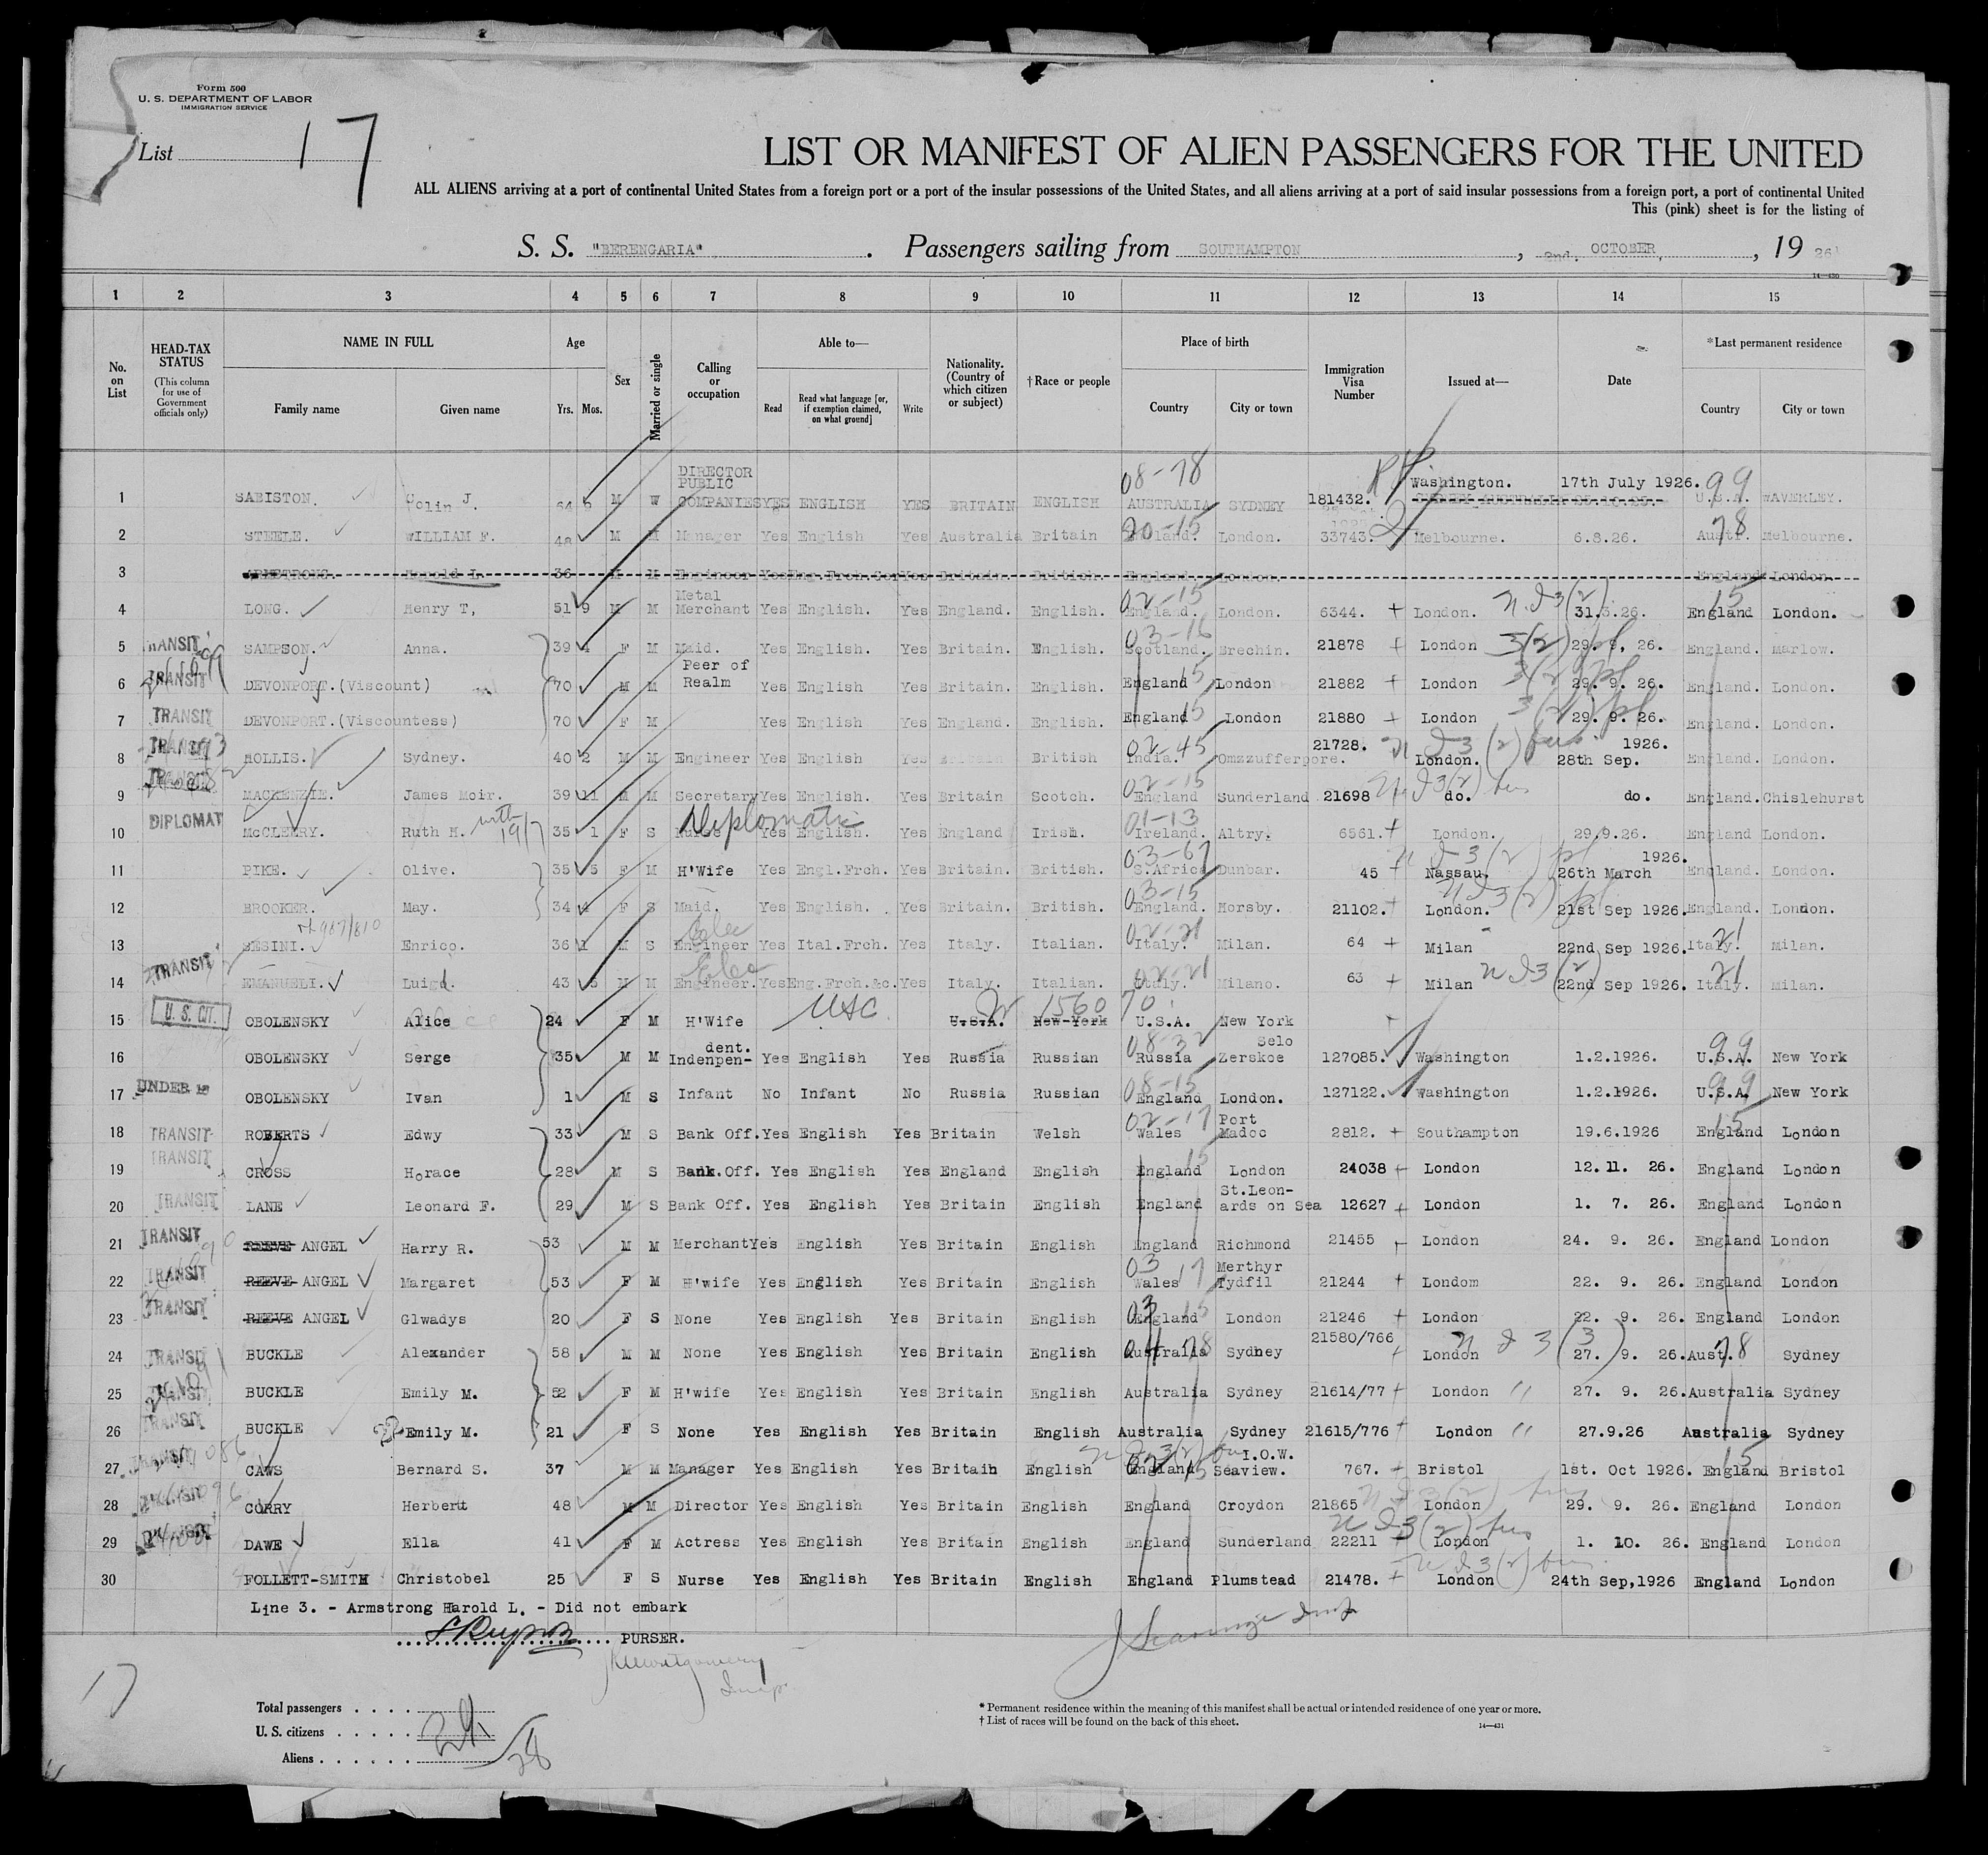 Form 500
U. S. DEPARTMENT OF LABOR
IMMIGRATION SERVICE
List 17
LIST OR MANIFEST OF ALIEN PASSENGERS FOR THE UNITED
ALL ALIENS arriving at a port of continental United States from a foreign port or a port of the insular possessions of the United States, and all aliens arriving at a port of said insular possessions from a foreign port, a port of continental United
This (pink) sheet is for the listing of
S. S. "BERENGARIA" . Passengers sailing from SOUTHAMPTON , 2nd. OCTOBER , 19 26
14—430
1 2 3 4 5 6 7 8 9 10 11 12 13 14 15
No. on List
HEAD-TAX STATUS (This column for use of Government officials only)
NAME IN FULL Family name Given name
Age Yrs. Mos.
Sex
Married or single
Calling or occupation
Able to— Read Read what language [or, if exemption claimed, on what ground] Write
Nationality. (Country of which citizen or subject)
†Race or people
Place of birth Country City or town
Immigration Visa Number
Issued at—
Date
*Last permanent residence Country City or town
1 SABISTON. Colin J 64 M W DIRECTOR PUBLIC COMPANIES YES ENGLISH YES BRITAIN ENGLISH 08-78 AUSTRALIA SYDNEY 181432. Washington. 17th July 1926. 99 U.S.A. WAVERLEY.
2 STEELE. WILLIAM F. 48 M M Manager Yes English Yes Australia Britain 20-15 England. London. 33743. Melbourne. 6.8.26. 78 Aust. Melbourne.
3 ARMSTRONG. Harold L. 36 M M Engineer Yes Eng.Frch.Ger Yes Britain. British. England London. England London
4 LONG. Henry T, 51 9 M M Metal Merchant Yes English. Yes England. English. 02-15 England. London. 6344. + London. 31.3.26. 15 England London.
5 TRANSIT SAMPSON. Anna. 39 4 F M Maid. Yes English. Yes Britain. English. 03-16 Scotland. Brechin. 21878 + London 3(2) 29. 9, 26. England. Marlow.
6 TRANSIT DEVONPORT.(Viscount) 70 M M Peer of Realm Yes English Yes Britain. English. England 15 London 21882 + London 3(2) 29. 9. 26. England. London.
7 TRANSIT DEVONPORT.(Viscountess) 70 F M Yes English Yes England. English. England 15 London 21880 + London 3(2) 29. 9. 26. England. London.
8 TRANSIT HOLLIS. Sydney. 40 2 M M Engineer Yes English Yes Britain British 02-45 India. Omzzufferpore. 21728. London. 28th Sep. 1926. England. London.
9 TRANSIT MACKENZIE. James Moir. 39 11 M M Secretary Yes English. Yes Britain Scotch. 02-15 England Sunderland 21698 do. do. England. Chislehurst
10 DIPLOMAT McCLEERY. Ruth H. with 19/7 35 1 F S Diplomatic Yes English. Yes England Irish. 01-13 Ireland. Altry. 6561. + London. 29.9.26. England London.
11 PIKE. Olive. 35 5 F M H'Wife Yes Engl.Frch. Yes Britain. British. 03-67 S.Africa Dunbar. 45 + Nassau. 26th March 1926. England. London.
12 BROOKER. May. 34 4 F S Maid. Yes English. Yes Britain. British. 03-15 England. Horsby. 21102. London. 21st Sep 1926. England. London.
13 SESINI. Enrico. 36 1 M S Elec Engineer Yes Ital.Frch. Yes Italy. Italian. 02-21 Italy. Milan. 64 + Milan 22nd Sep 1926. Italy. 21 Milan.
14 TRANSIT EMANUELI. Luigi. 43 5 M M Elec Engineer. Yes Eng.Frch.&c. Yes Italy. Italian. 02-21 Italy. Milano. 63 + Milan 22nd Sep 1926. 21 Italy. Milan.
15 U. S. CIT. OBOLENSKY Alice 24 F M H'Wife USC U.S.A. New York 1560 70 U.S.A. New York
16 OBOLENSKY Serge 35 M M Indenpen-dent. Yes English Yes Russia Russian 08-32 Russia Selo Zerskoe 127085. Washington 1.2.1926. 99 U.S.A. New York
17 UNDER 16 OBOLENSKY Ivan 1 M S Infant No Infant No Russia Russian 08-15 England London. 127122. Washington 1.2.1926. 99 U.S.A. New York
18 TRANSIT ROBERTS Edwy 33 M S Bank Off. Yes English Yes Britain Welsh 02-17 Wales Port Madoc 2812. + Southampton 19.6.1926 15 England London
19 TRANSIT CROSS Horace 28 M S Bank.Off. Yes English Yes England English England 15 London 24038 + London 12. 11. 26. England London
20 TRANSIT LANE Leonard F. 29 M S Bank Off. Yes English Yes Britain English England St.Leon-ards on Sea 12627 + London 1. 7. 26. England London
21 TRANSIT REEVE ANGEL Harry R. 53 M M Merchant Yes English Yes Britain English England Richmond 21455 + London 24. 9. 26. England London
22 TRANSIT REEVE ANGEL Margaret 53 F M H'wife Yes English Yes Britain English 03 17 Wales Merthyr Tydfil 21244 + Londom 22. 9. 26. England London
23 TRANSIT REEVE ANGEL Glwadys 20 F S None Yes English Yes Britain English 03 15 England London 21246 + London 22. 9. 26. England London
24 TRANSIT BUCKLE Alexander 58 M M None Yes English Yes Britain English 04 78 Australia Sydney 21580/766 + London 3(3) 27. 9. 26. Aust. 78 Sydney
25 TRANSIT BUCKLE Emily M. 52 F M H'wife Yes English Yes Britain English Australia Sydney 21614/77 + London " 27. 9. 26. Australia Sydney
26 TRANSIT BUCKLE Emily M. 21 F S None Yes English Yes Britain English Australia Sydney 21615/776 + London " 27.9.26 Australia Sydney
27 TRANSIT CAWS Bernard S. 37 M M Manager Yes English Yes Britain English England 15 I.O.W. Seaview. 767. + Bristol 1st. Oct 1926. 15 England Bristol
28 TRANSIT CORRY Herbert 48 M M Director Yes English Yes Britain English England Croydon 21865 London 29. 9. 26. England London
29 TRANSIT DAWE Ella 41 F M Actress Yes English Yes Britain English England Sunderland 22211 London 1. 10. 26. England London
30 FOLLETT-SMITH Christobel 25 F S Nurse Yes English Yes Britain English England Plumstead 21478. + London 24th Sep,1926 England London
Line 3. - Armstrong Harold L. - Did not embark
PURSER.
17
Total passengers . . . .
U. S. citizens . . . . .
Aliens . . . . . . 28
* Permanent residence within the meaning of this manifest shall be actual or intended residence of one year or more.
† List of races will be found on the back of this sheet.
14—431